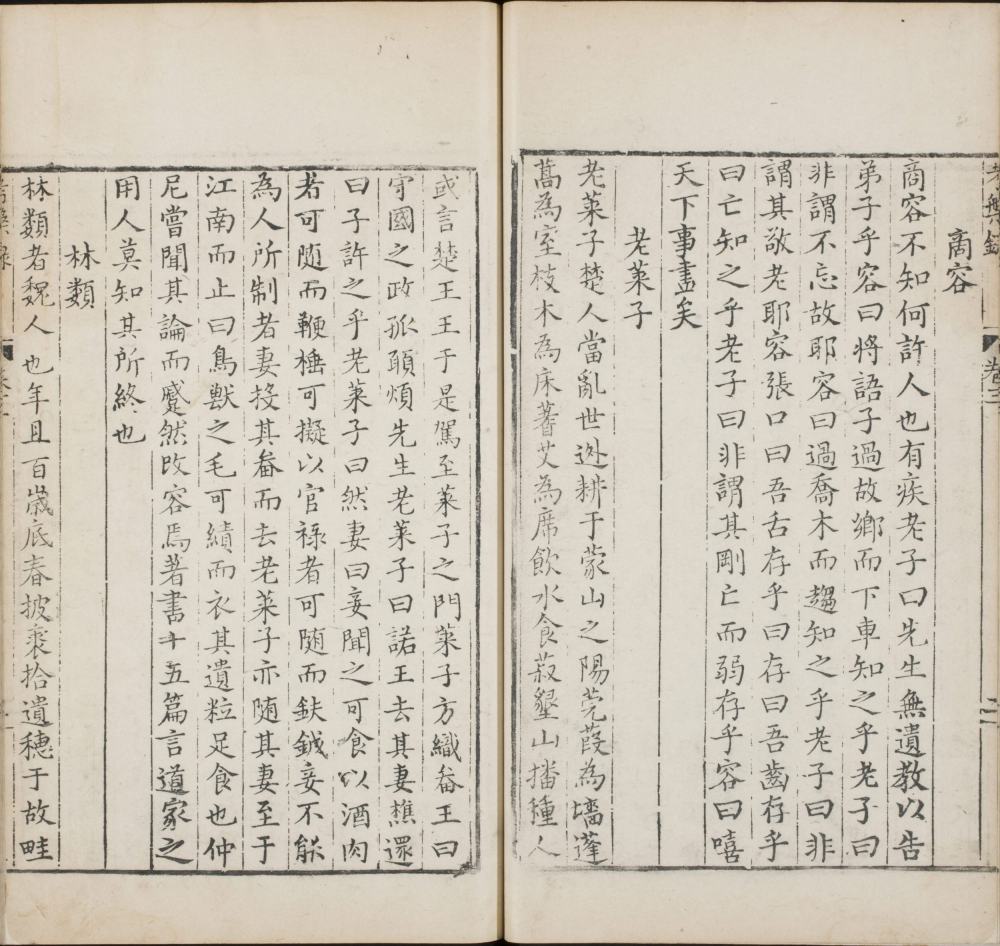 考槃錄
卷三
二
商容
商容不知何許人也有疾老子曰先生無遺教以告
弟子乎容曰將語子過故鄉而下車知之乎老子曰
非謂不忘故耶容曰過喬木而趨知之乎老子曰非
謂其敬老耶容張口曰吾舌存乎曰存曰吾齒存乎
曰亡知之乎老子曰非謂其剛亡而弱存乎容曰嘻
天下事盡矣
老萊子
老萊子楚人當亂世逃耕于蒙山之陽莞葭為墻蓬
蒿為室枝木為床蓍艾為席飲水食菽墾山播種人
或言楚王王于是駕至萊子之門萊子方織畚王曰
守國之政孤願煩先生老萊子曰諾王去其妻樵還
曰子許之乎老萊子曰然妻曰妾聞之可食以酒肉
者可隨而鞭棰可擬以官祿者可隨而鈇鉞妾不能
為人所制者妻投其畚而去老萊子亦隨其妻至于
江南而止曰鳥獸之毛可績而衣其遺粒足食也仲
尼嘗聞其論而蹙然改容焉著書十五篇言道家之
用人莫知其所終也
林類
林類者魏人也年且百歲底春披裘拾遺穗于故畦